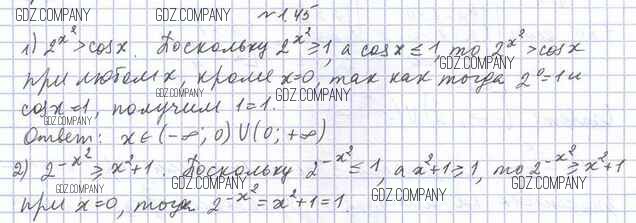 GDZ.COMPANY GDZ.COMPANY № 1.45 GDZ.COMPANY
1) 2^{x^2} > cos x. Поскольку 2^{x^2} ≥ 1, а cos x ≤ 1, то 2^{x^2} > cos x
GDZ.COMPANY GDZ.COMPANY
при любом x, кроме x=0, так как тогда 2^0 = 1 и
GDZ.COMPANY GDZ.COMPANY
cos x = 1, получим 1 = 1.
GDZ.COMPANY GDZ.COMPANY
Ответ: x ∈ (-∞; 0) ∪ (0; +∞)
GDZ.COMPANY GDZ.COMPANY
2) 2^{-x^2} ≥ x^2+1. Поскольку 2^{-x^2} ≤ 1, а x^2+1 ≥ 1, то 2^{-x^2} ≥ x^2+1
GDZ.COMPANY GDZ.COMPANY GDZ.COMPANY
при x = 0, тогда 2^{-x^2} = x^2+1 = 1.